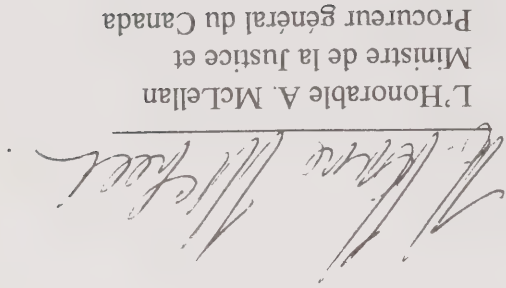 L'Honorable A. McLellan
Ministre de la Justice et
Procureur général du Canada